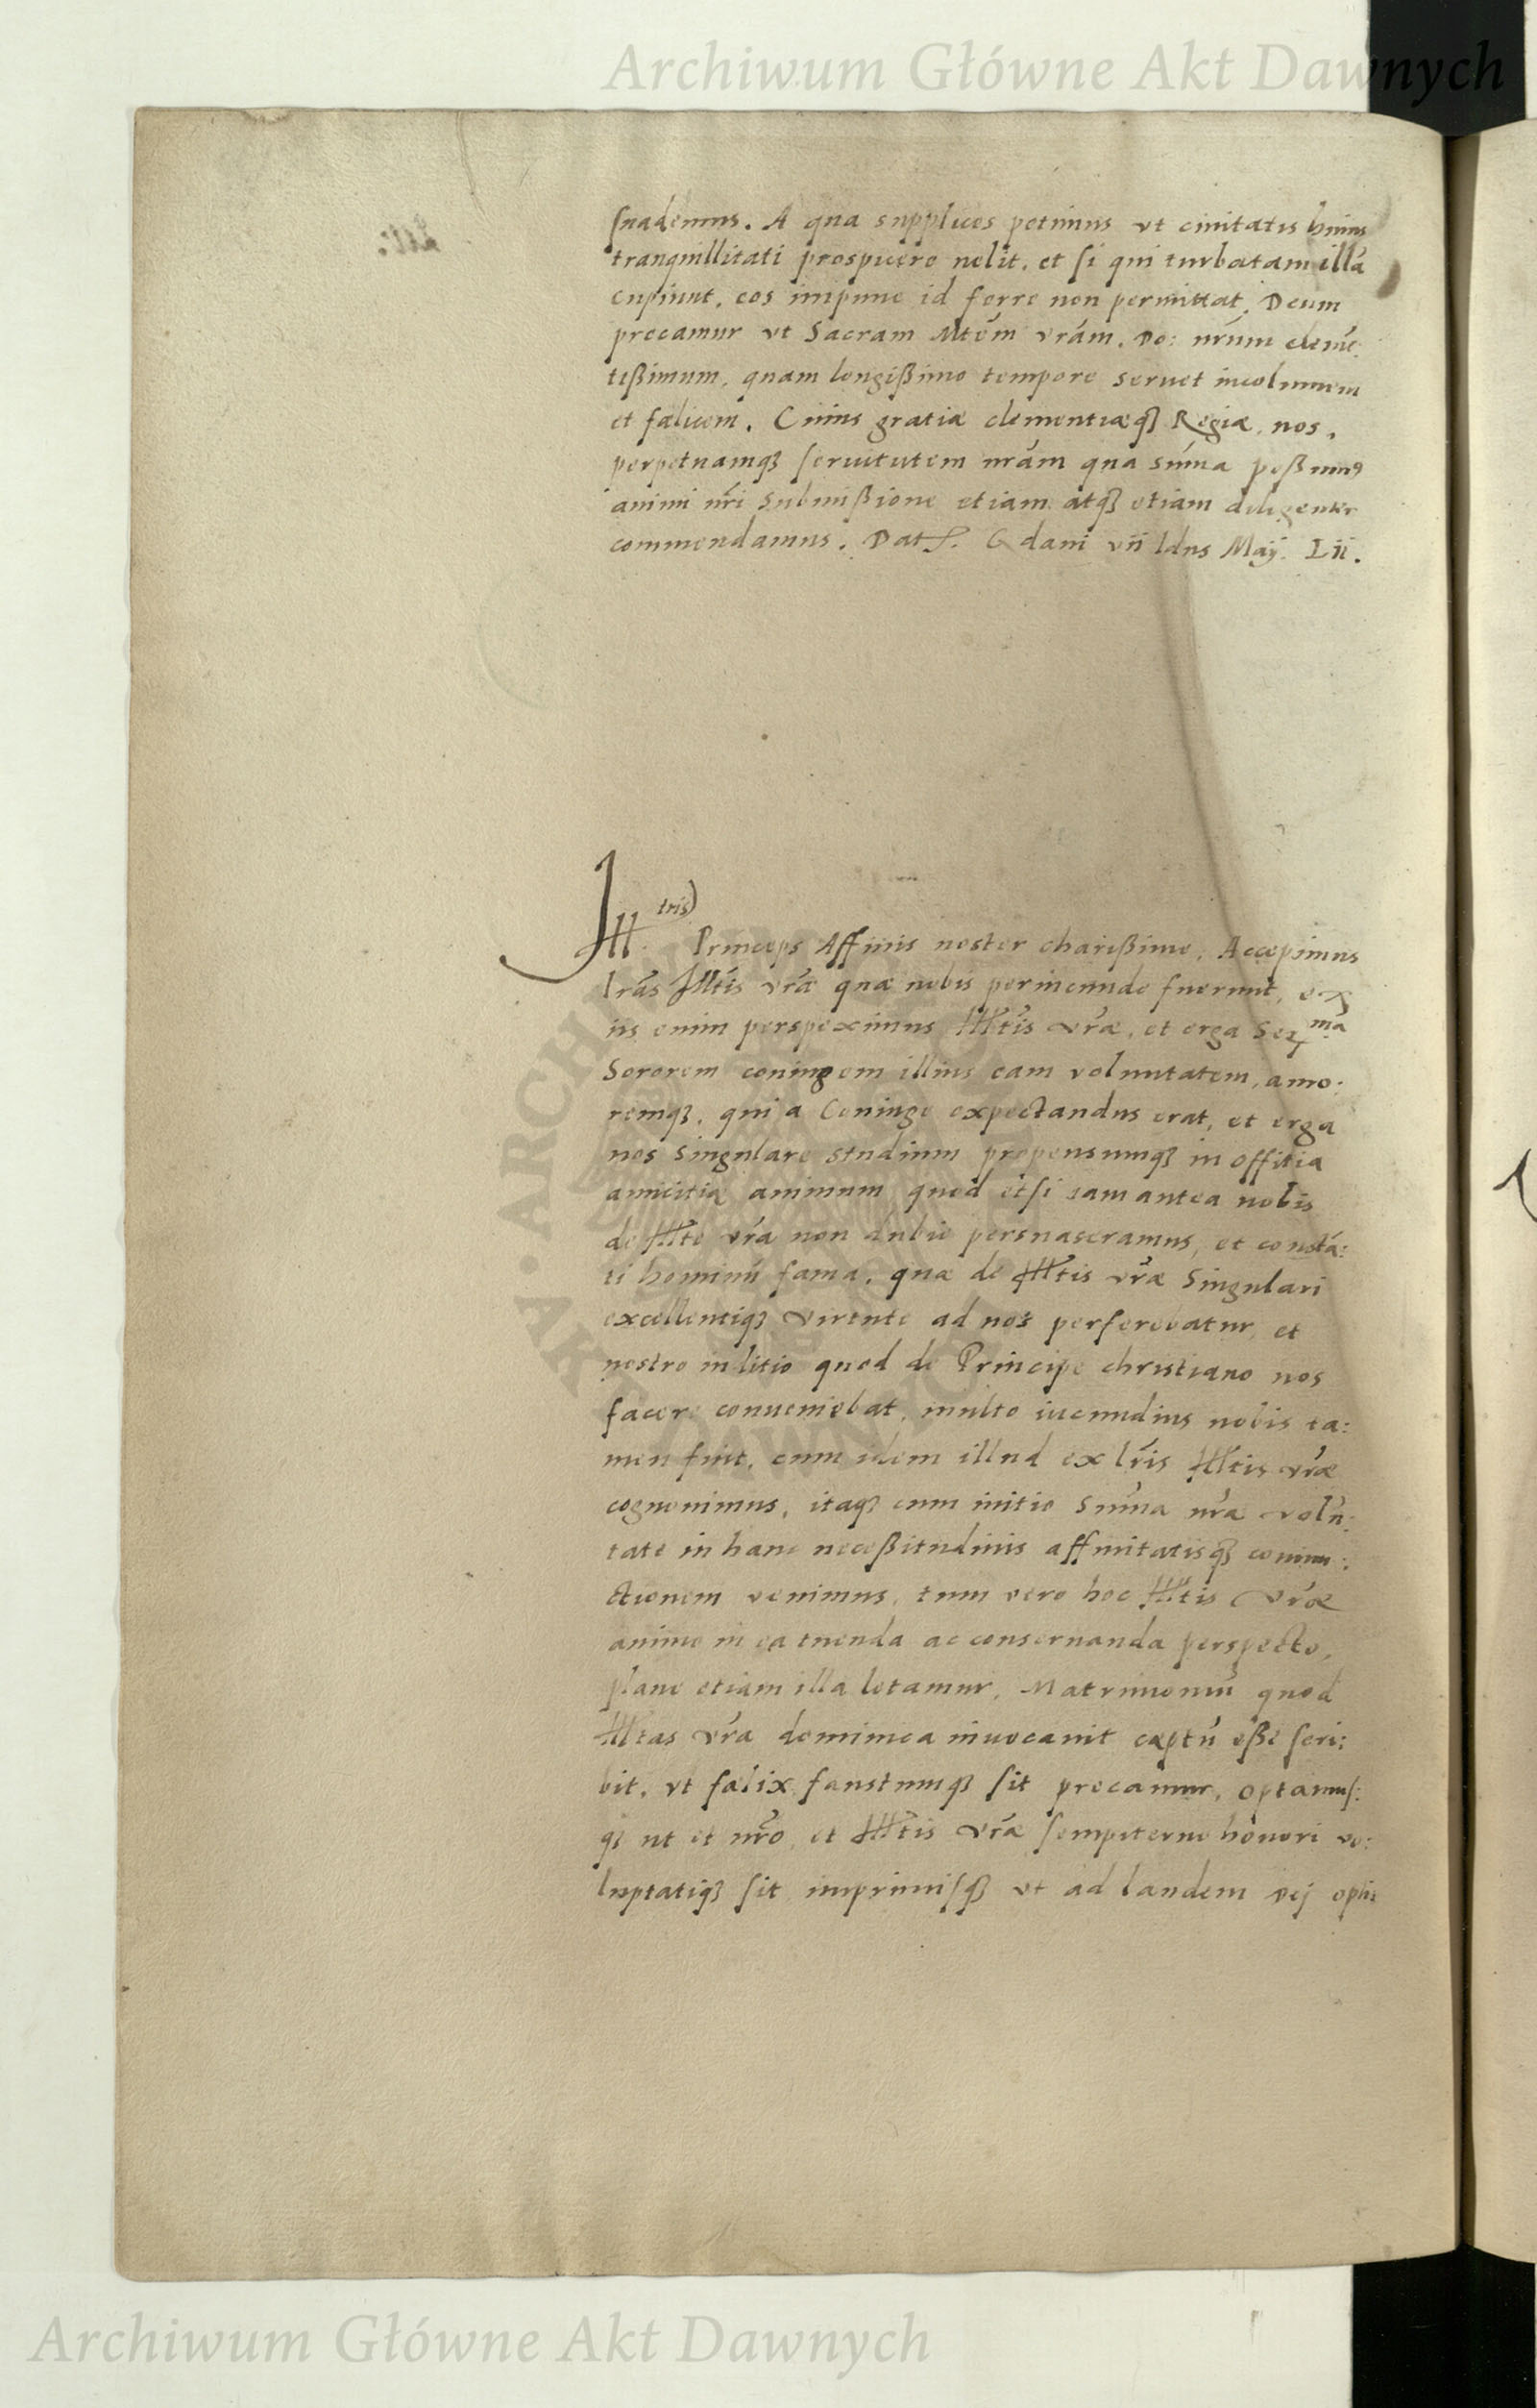 Archiwum Główne Akt Dawnych
suademus. A qua supplices petimus vt ciuitatis huius
tranquillitati prospicere uelit. et si qui turbatam illā
cupiunt, eos impune id ferre non permittat. Deum
precamur vt Sacram Mtem vram. Do: nrum clemē:
tißimum, quam longißimo tempore seruet incolumem
et fælicem. Cuius gratiæ clementiæq3 Regiæ, nos,
perpetuamq3 seruitutem nram qua suma poßimus
animi nri submißione etiam atq3 etiam diligenter
commendamus. Dat. Gdani vii Idus Maij. Lii.
Illtris Princeps Affinis noster charißime, Accepimus
lras Illtis vræ quæ nobis periucunde fuerunt, ex
iis enim perspeximus Illtis vræ, et erga Serma
Sororem coniugem illius eam voluntatem, amo:
remq3, qui a Coniuge expectandus erat, et erga
nos singulare studium propensumq3 in offitia
amicitiæ animum quod etsi iam antea nobis
de Illte vra non dubie persuaseramus, et constā:
ti hominū fama, quæ de Illtis vræ singulari
excellentiq3 virtute ad nos perferebatur, et
nostro iuditio quod de Principe christiano nos
facere conueniebat, multo iucundius nobis ta:
men fuit, cum idem illud ex lris Illtis vræ
cognouimus, itaq3 cum initio suma nra volū:
tate in hanc neceßitudinis affinitatisq3 coniun:
ctionem venimus, tum vero hoc Illtis vræ
animo in ea tuenda ac conseruanda perspecto,
plane etiam illa letamur, Matrimoniū quod
Illtas vra dominica inuocauit cæptū eße scri:
bit, vt fælix faustumq3 sit precamur, optamus:
q3 ut et nro, et Illtis vræ sempiterno honori vo:
luptatiq3 sit imprimisq3 vt ad laudem Dej
Archiwum Główne Akt Dawnych